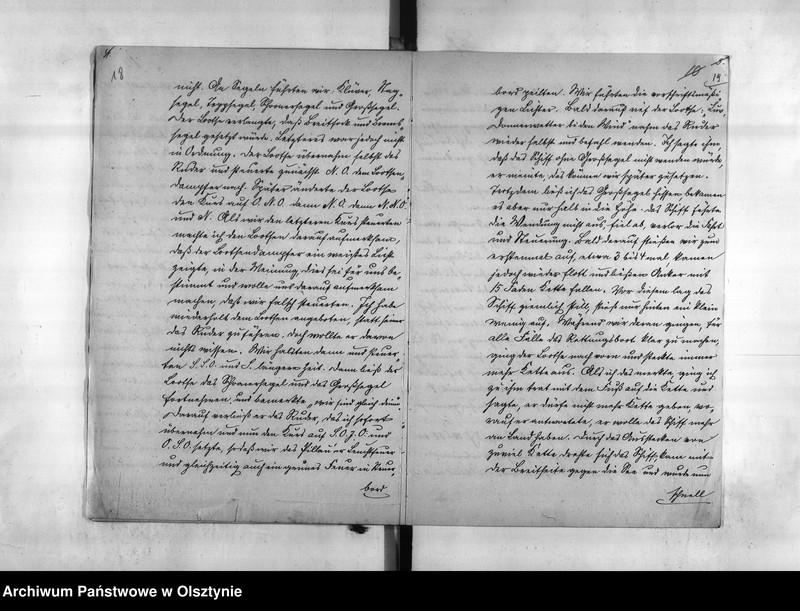 18
nicht. An Segeln führten wir: Klüver, Stag-
segel, Toppsegel, Schonersegel und Großsegel.
Der Lootse verlangte, daß Breitfock und Bram-
segel gesetzt würde. Letzteres war jedoch nicht
in Ordnung. Der Lootse übernahm selbst das
Ruder und steuerte zunächst N. O. dem Lootsen-
dampfer nach. Später änderte der Lootse
den Kurs auf O. N. O. dann N. O. dann N. N. O.
und N. Als wir den letzteren Kurs steuerten
machte ich den Lootsen darauf aufmerksam,
daß der Lootsendampfer ein weißes Licht
zeigte, in der Meinung, dies sei für uns be-
stimmt und wolle uns darauf aufmerksam
machen, daß wir falsch steuerten. Ich habe
wiederholt dem Lootsen angeboten, statt seiner
das Ruder zu führen, doch wollte er davon
nichts wissen. Wir halsten dann und steuer-
ten S. S. O. und S. längere Zeit. Dann ließ der
Lootse das Schonersegel und das Großsegel
fortnehmen, und bemerkte „wir sind gleich drin“.
Darauf verließ er das Ruder, das ich sofort
übernahm und nun den Kurs auf S. O. z. O. und
O. S. O. setzte, sodaß wir das Pillauer Leuchtfeuer
und gleichzeitig auch ein grünes Feuer in Steuer-
bord
19
bord peilten. Wir führten die vorschriftsmäßi-
gen Lichter. Bald darauf rief der Lootse:
Donnerwetter bi den Wind nahm das Ruder
wieder selbst und befahl wenden. Ich sagte ihm,
daß das Schiff ohne Großsegel nicht wenden würde,
er meinte, das können wir später zusetzen.
Trotzdem ließ ich das Großsegel hissen bekamen
es aber nur halb in die Höhe. Das Schiff führte
die Wendung nicht aus, fiel ab, verlor die Fahrt
und Steuerung. Bald darauf stießen wir zum
erstenmal auf, etwa 3 bis 4 mal kamen
jedoch wieder flott und ließen Anker mit
15 Faden Kette fallen. Vor diesem lag das
Schiff ziemlich still, stieß nur hinten ein klein
wenig auf. Während wir daran gingen, für
alle Fälle das Rettungsboot klar zu machen,
ging der Lootse nach vorn und steckte immer
mehr Kette aus. Als ich das merkte, ging ich
zu ihm trat mit dem Fuß auf die Kette und
sagte, er dürfe nicht mehr Kette geben, wo-
rauf er antwortete, er wolle das Schiff mehr
an Land haben. Durch das Ausstecken von
zuviel Kette drehte sich das Schiff, kam mit
der Breitseite gegen die See und wurde nun
schnell
Archiwum Państwowe w Olsztynie